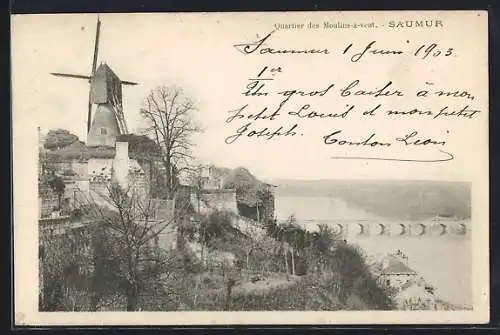 Quartier des Moulins-à-vent. - SAUMUR
Saumur 1 Juin 1903
1er
Un gros Baiser à mon
petit Louis et mon petit
Joseph. Tonton Léon